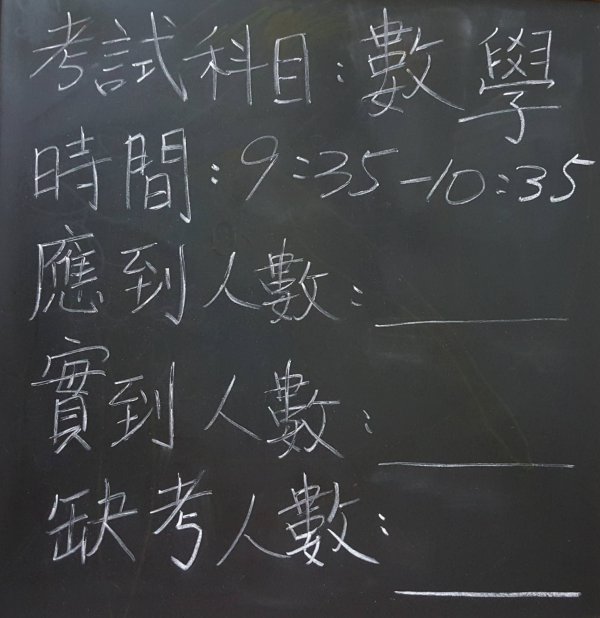 考試科目:數學
時間:9:35-10:35
應到人數:
實到人數:
缺考人數: